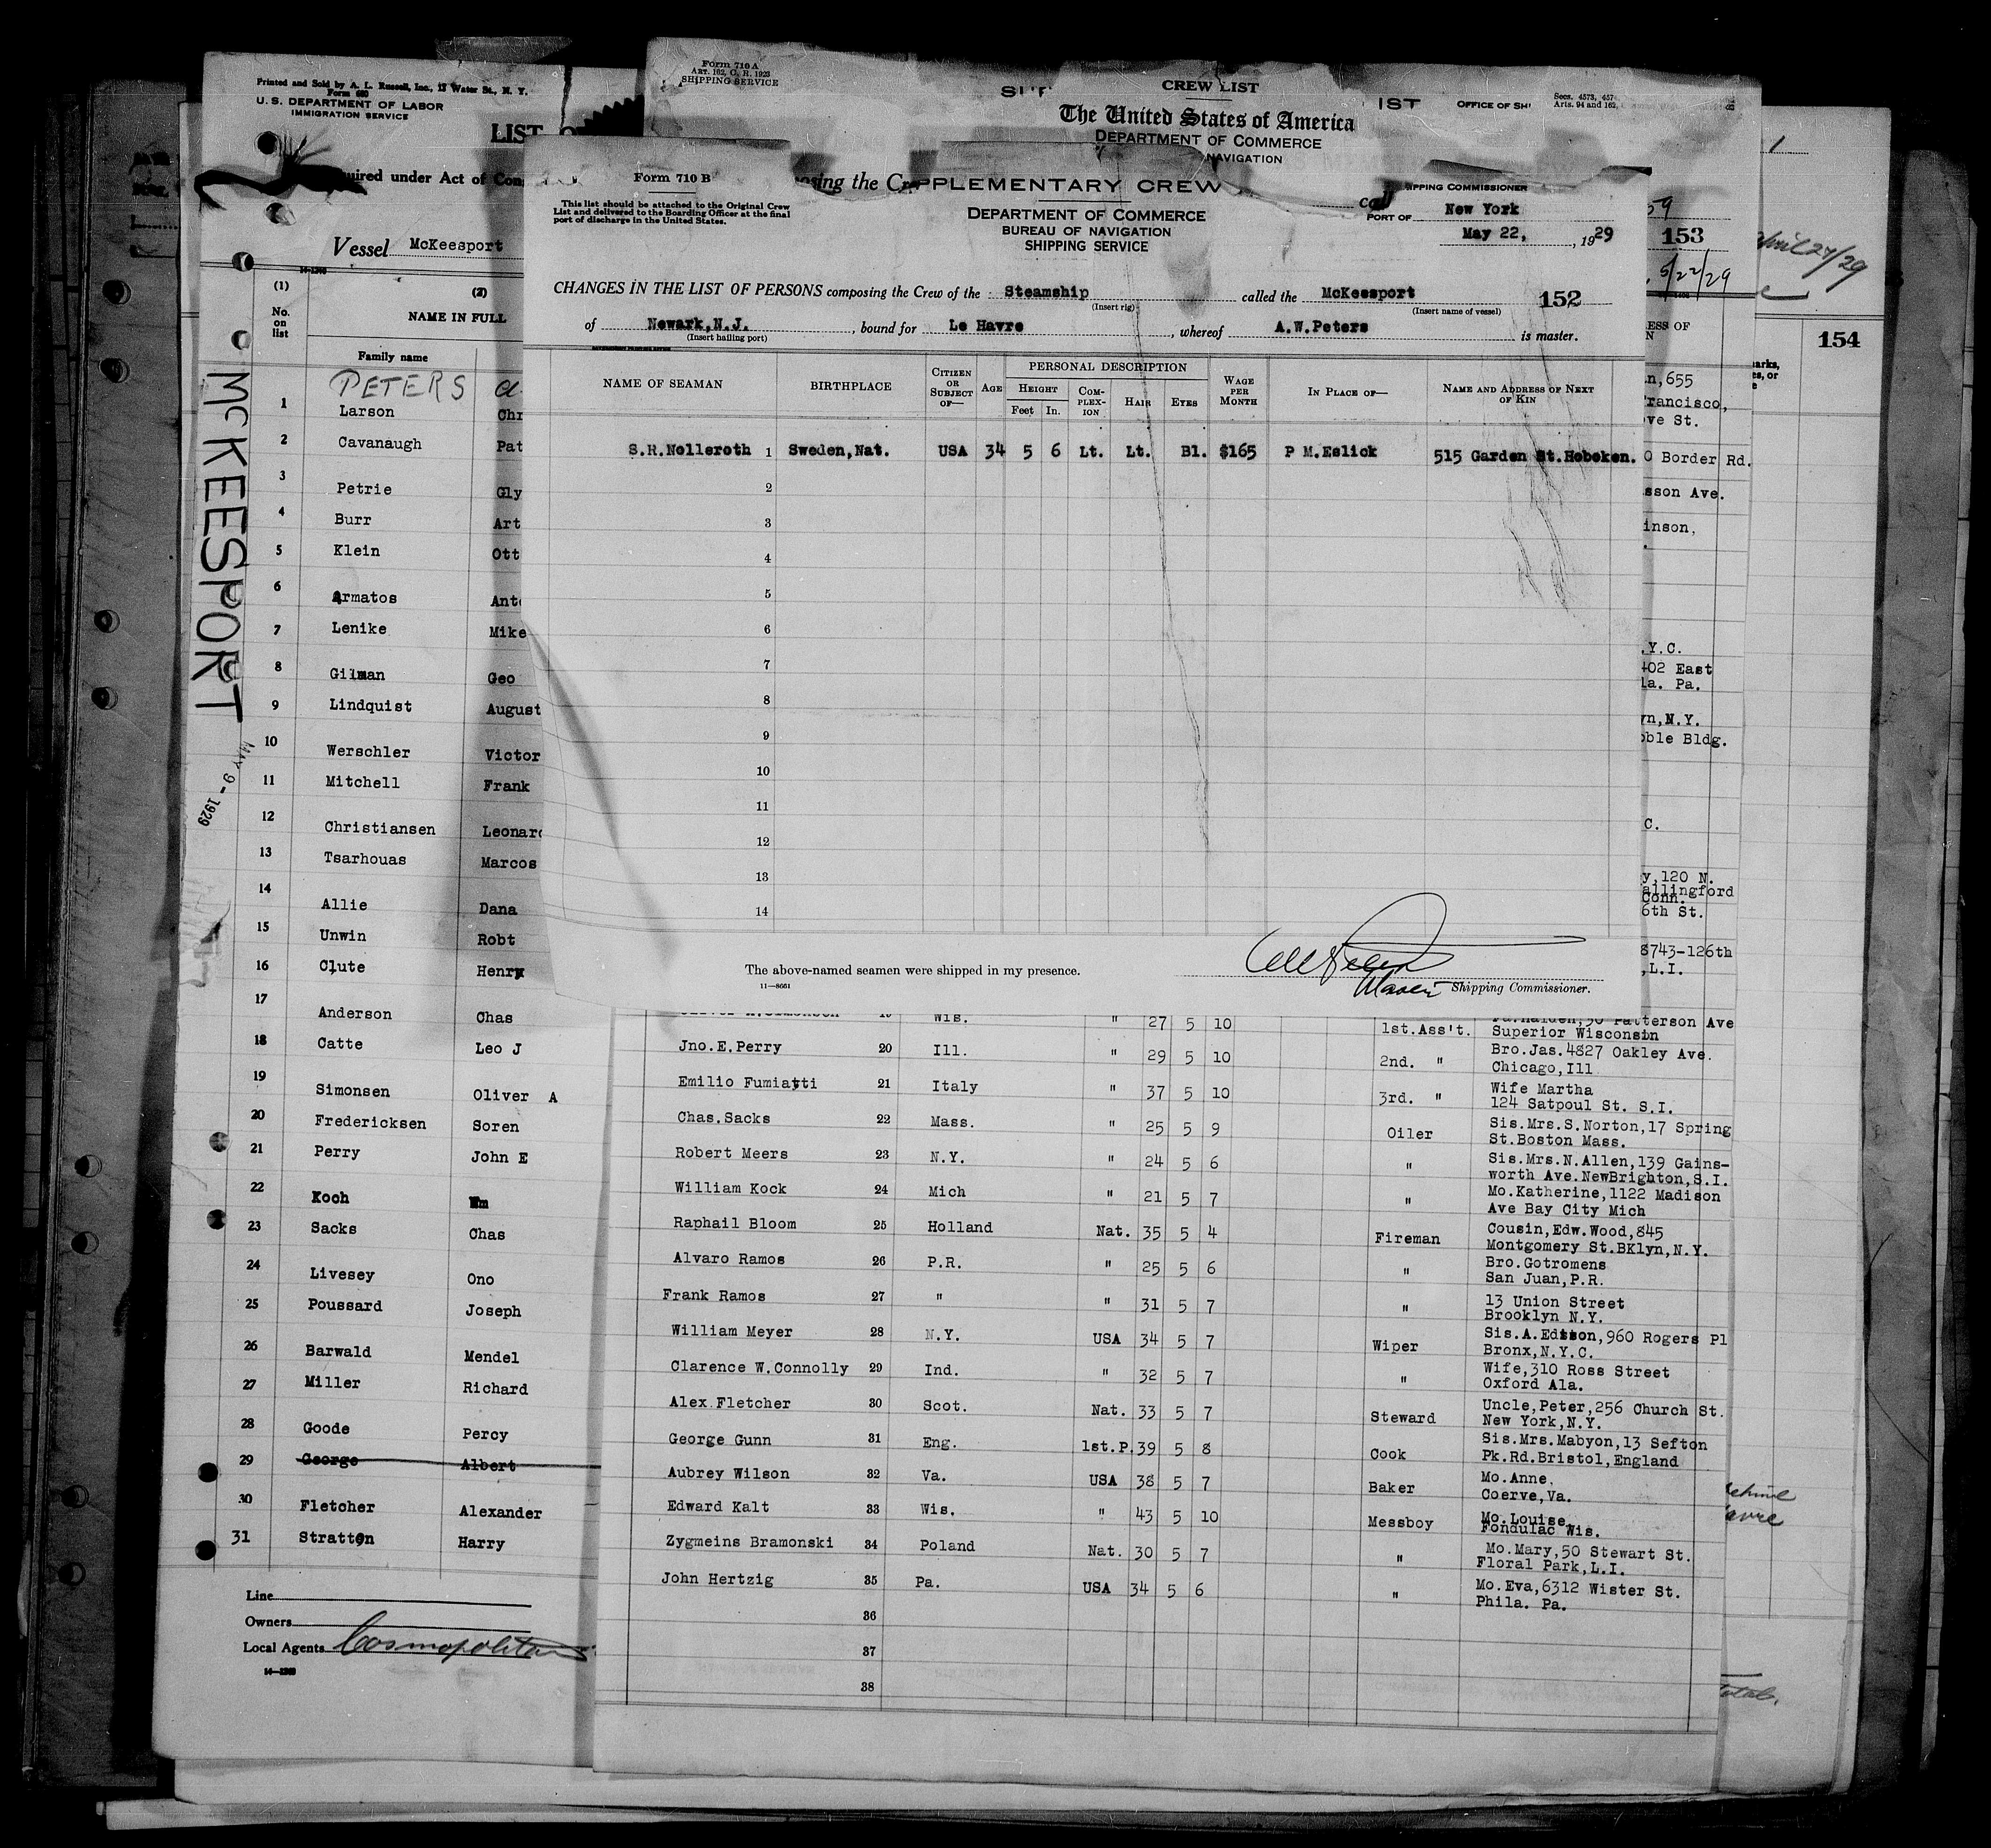 Printed and Sold by A. L. Russell, Inc., 17 Water St., N. Y.
Form 680
U.S. DEPARTMENT OF LABOR
IMMIGRATION SERVICE
LIST
uired under Act of Con
Vessel McKeesport
(1) (2)
No. on list NAME IN FULL
Family name
PETERS a.
1 Larson Chr
2 Cavanaugh Pat
3 Petrie Gly
4 Burr Art
5 Klein Ott
6 Armatos Ant
7 Lenike Mike
8 Gilman Geo
9 Lindquist August
10 Werschler Victor
11 Mitchell Frank
12 Christiansen Leonard
13 Tsarhouas Marcos
14 Allie Dana
15 Unwin Robt
16 Clute Henry
17 Anderson Chas
18 Catte Leo J
19 Simonsen Oliver A
20 Fredericksen Soren
21 Perry John E
22 Koch Wm
23 Sacks Chas
24 Livesey Ono
25 Poussard Joseph
26 Barwald Mendel
27 Miller Richard
28 Goode Percy
29 George Albert
30 Fletcher Alexander
31 Stratton Harry
Line
Owners
Local Agents Cosmopolitan
14—1240
McKEESPORT
MAY 9 - 1929
Form 710 A
ART. 162, C. R. 1923
SHIPPING SERVICE
CREW LIST
The United States of America
DEPARTMENT OF COMMERCE
NAVIGATION
IST OFFICE OF SHI
Secs. 4573, 457
Arts. 94 and 162,
Form 710 B
This list should be attached to the Original Crew
List and delivered to the Boarding Officer at the final
port of discharge in the United States.
osing the C
PPLEMENTARY CREW
DEPARTMENT OF COMMERCE
BUREAU OF NAVIGATION
SHIPPING SERVICE
IPPING COMMISSIONER
PORT OF New York
May 22, , 1929
CHANGES IN THE LIST OF PERSONS composing the Crew of the Steamship called the McKeesport 152
(Insert rig) (Insert name of vessel)
of Newark,N.J. , bound for Le Havre , whereof A.W.Peters is master.
(Insert hailing port)
NAME OF SEAMAN BIRTHPLACE CITIZEN OR SUBJECT OF— AGE PERSONAL DESCRIPTION WAGE PER MONTH IN PLACE OF— NAME AND ADDRESS OF NEXT OF KIN
HEIGHT COM-PLEX-ION HAIR EYES
Feet In.
S.R.Nolleroth 1 Sweden,Nat. USA 34 5 6 Lt. Lt. Bl. $165 P M.Eslick 515 Garden St.Hoboken.
2
3
4
5
6
7
8
9
10
11
12
13
14
The above-named seamen were shipped in my presence.
11—8661
Master Shipping Commissioner.
19 Wis. " 27 5 10 1st.Ass't. Patterson Ave
Superior Wisconsin
Jno.E.Perry 20 Ill. " 29 5 10 2nd. " Bro.Jas.4827 Oakley Ave.
Chicago,Ill
Emilio Fumiatti 21 Italy " 37 5 10 3rd. " Wife Martha
124 Satpoul St. S.I.
Chas.Sacks 22 Mass. " 25 5 9 Oiler Sis.Mrs.S.Norton,17 Spring
St.Boston Mass.
Robert Meers 23 N.Y. " 24 5 6 " Sis.Mrs.N.Allen,139 Gains-
worth Ave.NewBrighton,S.I.
William Kock 24 Mich " 21 5 7 " Mo.Katherine,1122 Madison
Ave Bay City Mich
Raphail Bloom 25 Holland Nat. 35 5 4 Fireman Cousin,Edw.Wood,845
Montgomery St.BKlyn,N.Y.
Alvaro Ramos 26 P.R. " 25 5 6 " Bro.Gotromens
San Juan,P.R.
Frank Ramos 27 " " 31 5 7 " 13 Union Street
Brooklyn N.Y.
William Meyer 28 N.Y. USA 34 5 7 Wiper Sis.A.Edison,960 Rogers Pl
Bronx,N.Y.C.
Clarence W.Connolly 29 Ind. " 32 5 7 " Wife,310 Ross Street
Oxford Ala.
Alex.Fletcher 30 Scot. Nat. 33 5 7 Steward Uncle,Peter,256 Church St.
New York,N.Y.
George Gunn 31 Eng. 1st.P. 39 5 8 Cook Sis.Mrs.Mabyon,13 Sefton
Pk.Rd.Bristol,England
Aubrey Wilson 32 Va. USA 38 5 7 Baker Mo.Anne.
Coerve,Va.
Edward Kalt 33 Wis. " 43 5 10 Messboy Mo.Louise,
Fondulac Wis.
Zygmeins Bramonski 34 Poland Nat. 30 5 7 " Mo.Mary,50 Stewart St.
Floral Park,L.I.
John Hertzig 35 Pa. USA 34 5 6 " Mo.Eva,6312 Wister St.
Phila. Pa.
36
37
38
59
153
5/22/29
April 27/29
1
154
ESS OF
n,655
rancisco,
ve St.
0 Border Rd.
sson Ave.
inson,
.Y.C.
402 East
la. Pa.
yn,N.Y.
oble Bldg.
C.
y,120 N.
allingford
Conn.
6th St.
8743-126th
,L.I.
arks,
es, or